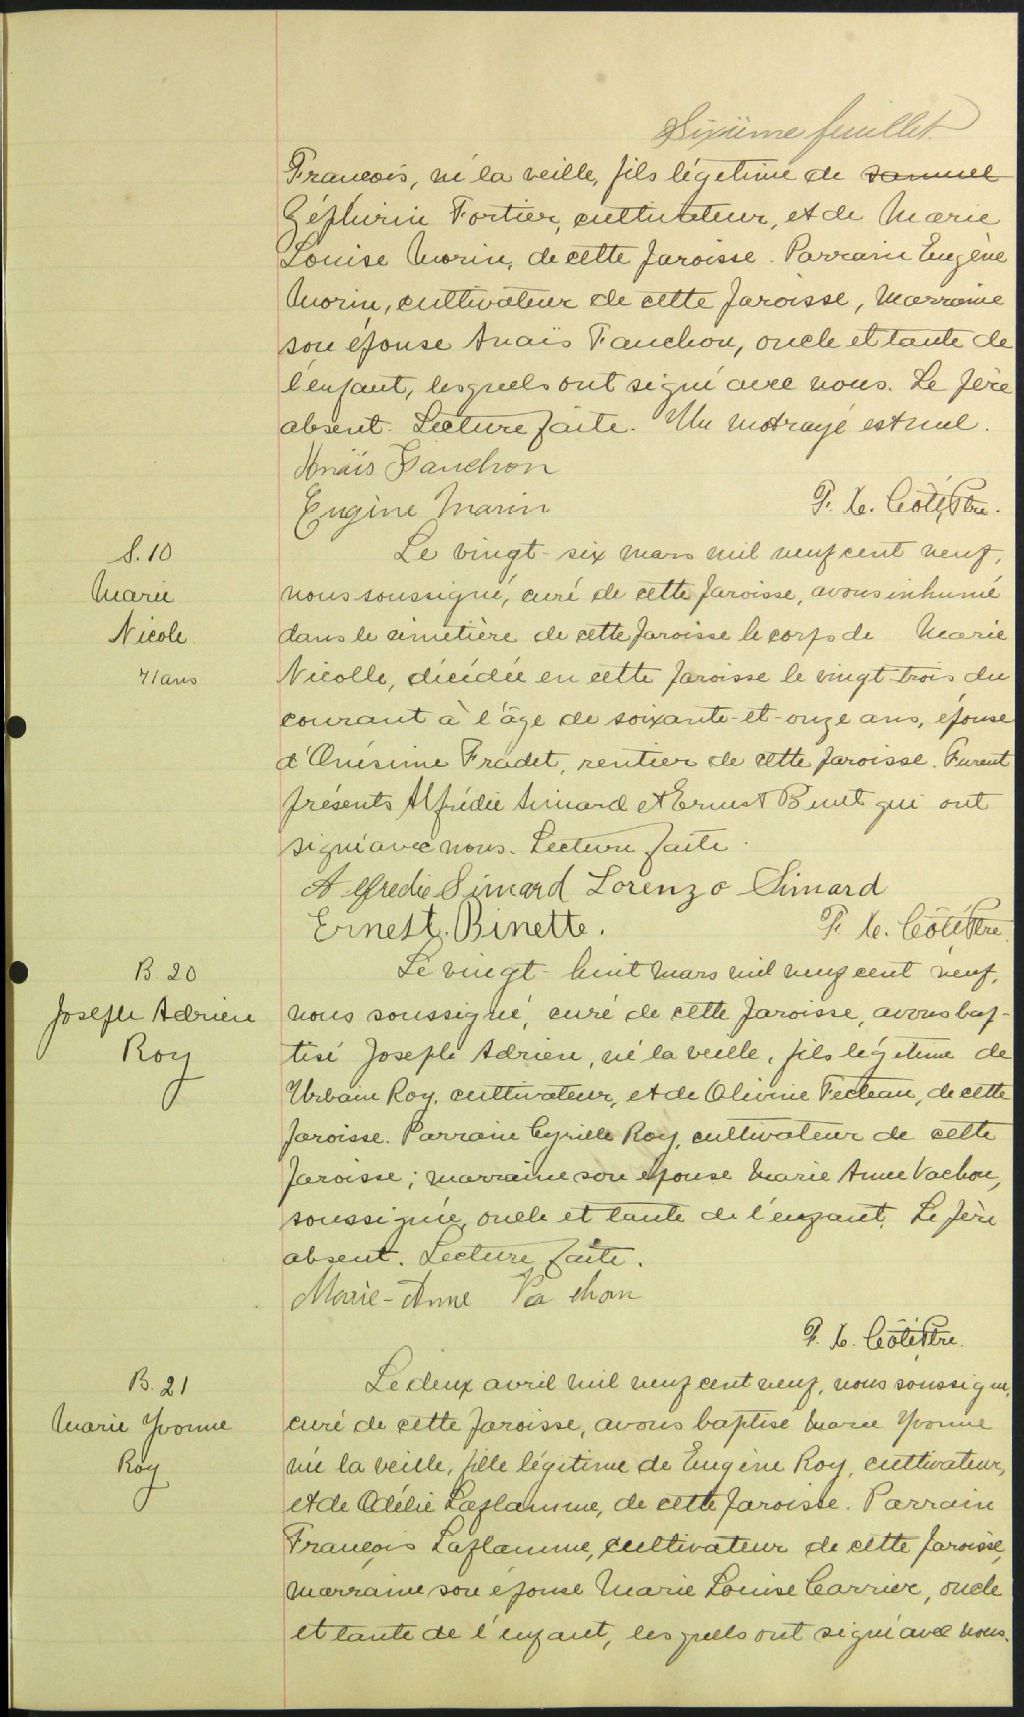 Sixième feuillet
François, né la veille, fils légitime de samuel
Zéphirin Fortier, cultivateur, et de Marie
Louise Morin, de cette paroisse. Parrain Eugène
Morin, cultivateur de cette paroisse, Marraine
son épouse Anaïs Fauchon, oncle et tante de
l'enfant, lesquels ont signé avec nous. Le père
absent. Lecture faite. Un mot rayé est nul.
Anaïs Fauchon
Eugène Marin
F. X. Côté, Ptre.
S. 10
Marie
Nicole
71 ans
Le vingt-six mars mil neuf cent neuf,
nous soussigné, curé de cette paroisse, avons inhumé
dans le cimetière de cette paroisse le corps de Marie
Nicolle, décédée en cette paroisse le vingt-trois du
courant à l'âge de soixante-et-onze ans, épouse
d'Onésime Fradet, rentier de cette paroisse. Furent
présents Alfrédie Simard et Ernest Binet qui ont
signé avec nous. Lecture faite.
Alfredie Simard Lorenzo Simard
Ernest. Binette.
F. X. Côté Ptre.
B. 20
Joseph Adrien
Roy
Le vingt-huit mars mil neuf cent neuf,
nous soussigné, curé de cette paroisse, avons bap-
tisé Joseph Adrien, né la veille, fils légitime de
Urbain Roy, cultivateur, et de Olivine Fecteau, de cette
paroisse. Parrain Cyrille Roy, cultivateur de cette
paroisse; marraine son épouse Marie Anne Vachon,
soussignée, oncle et tante de l'enfant. Le père
absent. Lecture faite.
Marie-Anne Vachon
F. X. Côté Ptre.
B. 21
Marie Yvonne
Roy
Le deux avril mil neuf cent neuf, nous soussigné,
curé de cette paroisse, avons baptisé Marie Yvonne
née la veille, fille légitime de Eugène Roy, cultivateur,
et de Odélie Laflamme, de cette paroisse. Parrain
François Laflamme, cultivateur de cette paroisse,
marraine son épouse Marie Louise Carrier, oncle
et tante de l'enfant, lesquels ont signé avec nous.